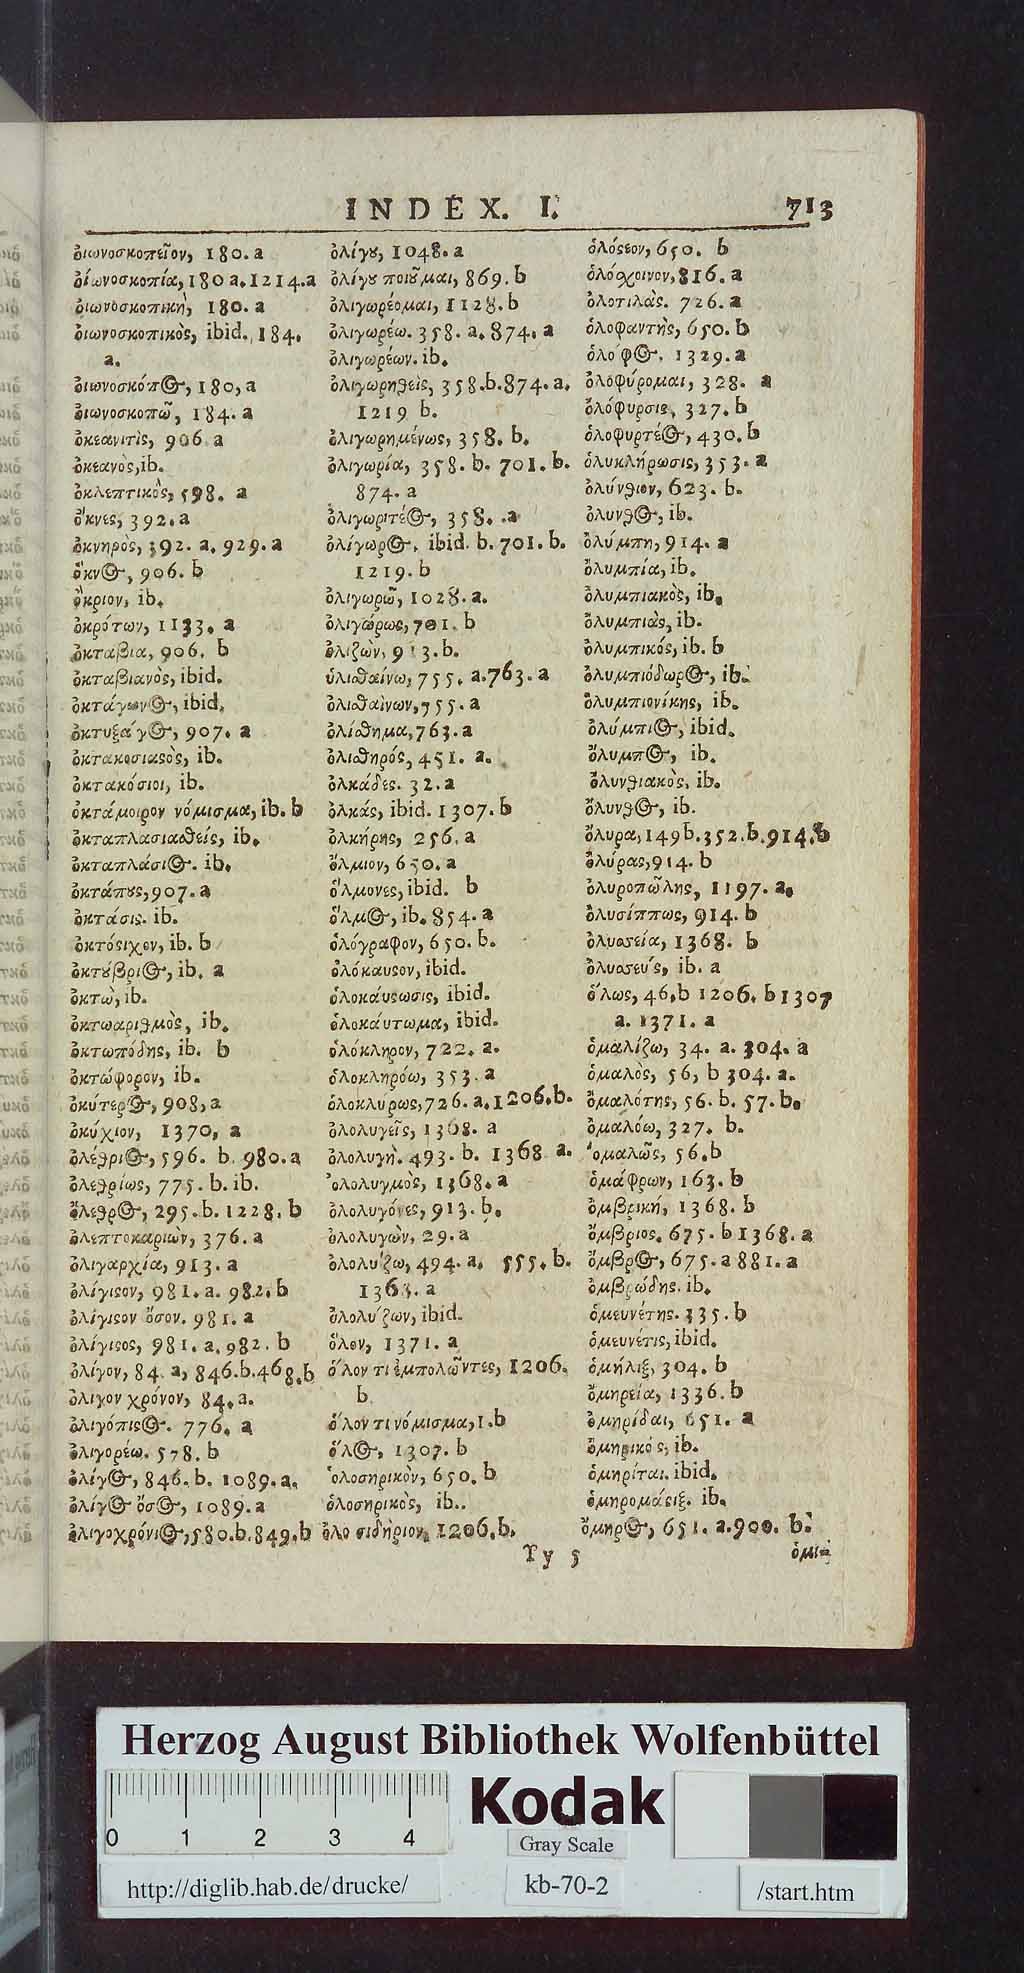 INDEX. I. 713
ὀιωνοσκοπεῖον, 180. a
ὀιωνοσκοπία, 180 a. 1214. a
ὀιωνοσκοπικὴ, 180. a
ὀιωνοσκοπικὸς, ibid. 184.
a.
ὀιωνοσκόπος, 180, a
ὀιωνοσκοπῶ, 184. a
ὀκεανιτὶς, 906. a
ὀκεανὸς, ib.
ὀκλεπτικὸς, 598. a
ὄκνες, 392. a
ὀκνηρὸς, 392. a. 929. a
ὄκνος, 906. b
ὄκριον, ib.
ὀκρότων, 1133. a
ὀκταβια, 906. b
ὀκταβιανὸς, ibid.
ὀκτάγωνος, ibid.
907. a
ὀκτακοσιαςὸς, ib.
ὀκτακόσιοι, ib.
ὀκτάμοιρον νόμισμα, ib. b
ὀκταπλασιαθείς, ib.
ὀκταπλάσιος. ib.
ὀκτάπους, 907. a
ὀκτάσις. ib.
ὀκτόςιχον, ib. b
ὀκτούβριος, ib. a
ὀκτὼ, ib.
ὀκτωαριθμὸς, ib.
ὀκτωπόδης, ib. b
ὀκτώφορον, ib.
ὀκύτερος, 908, a
ὀκύχιον, 1370, a
ὀλέθριος, 596. b. 980. a
ὀλεθρίως, 775. b. ib.
ὄλεθρος, 295. b. 1228. b
ὀλεπτοκαριὼν, 376. a
ὀλιγαρχία, 913. a
ὀλίγιςον, 981. a. 982. b
ὀλίγιςον ὅσον. 981. a
ὀλίγιςος, 981. a. 982. b
ὀλίγον, 84. a, 846. b. 468. b
ὀλιγον χρόνον, 84. a.
ὀλιγόπιςος. 776. a
ὀλιγορέω. 578. b
ὀλίγος, 846. b. 1089. a.
ὀλίγος ὅσος, 1089. a
ὀλιγοχρόνιος, 580. b. 849. b
ὀλίγου, 1048. a
ὀλίγου ποιοῦμαι, 869. b
ὀλιγωρέομαι, 1128. b
ὀλιγωρέω. 358. a. 874. a
ὀλιγωρέων. ib.
ὀλιγωρηθεὶς, 358. b. 874. a.
1219 b.
ὀλιγωρημένως, 358. b.
ὀλιγωρία, 358. b. 701. b.
874. a
ὀλιγωριτέος, 358. a
ὀλίγωρος. ibid. b. 701. b.
1219. b
ὀλιγωρῶ, 1028. a.
ὀλιγώρως, 701. b
ὀλιζὼν, 913. b.
ὑλισθαίνω, 755. a. 763. a
ὀλισθαίνων, 755. a
ὀλίσθημα, 763. a
ὀλισθηρός, 451. a.
ὀλκάδες. 32. a
ὀλκάς, ibid. 1307. b
ὀλκήρης, 256. a
ὄλμιον, 650. a
ὅλμονες, ibid. b
ὅλμος, ib. 854. a
ὁλόγραφον, 650. b.
ὁλόκαυςον, ibid.
ὁλοκάυςωσις, ibid.
ὁλοκάυτωμα, ibid.
ὁλόκληρον, 722. a.
ὁλοκληρόω, 353. a
ὁλοκλύρως, 726. a. 1206. b.
ὀλολυγεῖς, 1368. a
ὀλολυγὴ. 493. b. 1368 a.
ὀλολυγμὸς, 1368. a
ὀλολυγόνες, 913. b.
ὀλολυγὼν, 29. a
ὀλολύζω, 494. a. 555. b.
1368. a
ὀλολύζων, ibid.
ὅλον, 1371. a
ὅλον τι ἐμπολῶντες, 1206.
b
ὅλον τι νόμισμα, 1. b
ὅλος, 1307. b
ὁλοσηρικὸν, 650. b
ὁλοσηρικὸς, ib.
ὁλο σιδήριον, 1206. b.
ὁλόςεον, 650. b
ὁλόσχοινον, 816. a
ὁλοτιλὰς. 726. a
ὁλοφαντὴς, 650. b
ὁλόφος. 1329. a
ὀλοφύρομαι, 328. a
ὀλόφυρσις, 327. b
ὀλοφυρτέος, 430. b
ὁλυκλήρωσις, 353. a
ὀλύνθιον, 623. b.
ὀλυνθος, ib.
ὀλύμπη, 914. a
ὀλυμπία, ib.
ὀλυμπιακὸς, ib.
ὀλυμπιὰς, ib.
ὀλυμπικός, ib. b
ὀλυμπιόδωρος, ib.
ὀλυμπιονίκης, ib.
ὀλύμπιος, ibid.
ὄλυμπος, ib.
ὀλυνθιακὸς, ib.
ὄλυνθος, ib.
ὄλυρα, 149b. 352. b. 914. b
ὀλύρας, 914. b
ὀλυροπώλης, 1197. a.
ὀλυσίππως, 914. b
ὀλυσσεία, 1368. b
ὀλυσσεύς, ib. a
ὅλως, 46, b 1206. b 1307
a. 1371. a
ὁμαλίζω, 34. a. 304. a
ὁμαλὸς, 56, b 304. a.
ὁμαλότης, 56. b. 57. b.
ὁμαλόω, 327. b.
ὁμαλῶς, 56. b
ὁμάφρων, 163. b
ὀμβρική, 1368. b
ὄμβριος. 675. b 1368. a
ὄμβρος, 675. a 881. a
ὀμβρώδης. ib.
ὁμευνέτης. 335. b
ὁμευνέτις, ibid.
ὁμήλιξ, 304. b
ὁμηρεία, 1336. b
ὁμηρίδαι, 651. a
ὁμηρικός, ib.
ὁμηρίται. ibid.
ὁμηρομάςιξ. ib.
ὅμηρος, 651. a. 900. b.
Yy 5 ὁμι-
Herzog August Bibliothek Wolfenbüttel
0 1 2 3 4
Kodak
Gray Scale
http://diglib.hab.de/drucke/ kb-70-2 /start.htm